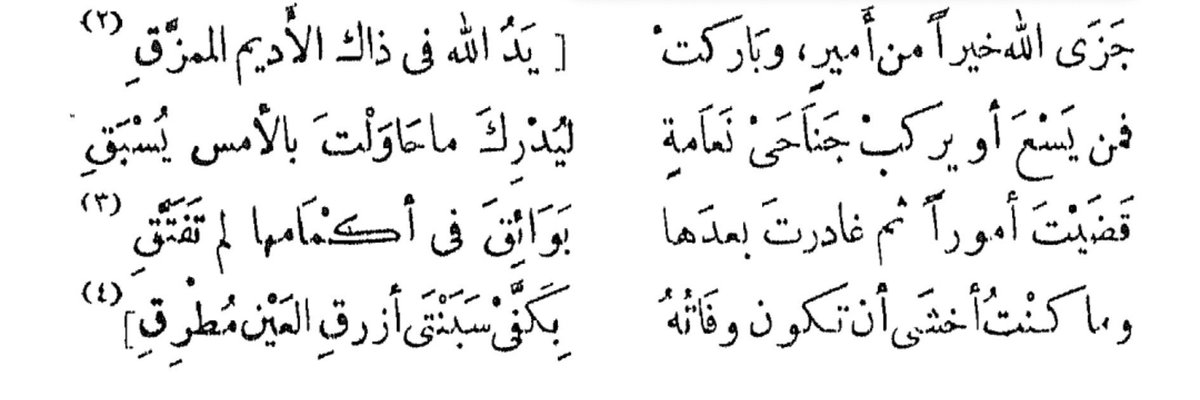 جَزَى الله خيراً من أَميرٍ، وبَاركتْ [ يَدُ الله فى ذاك الأَديم الممزَّقِ (٢)
فمن يَسْعَ أو يركبْ جَنَاحَىْ نَعَامةٍ ليُدْرِكَ ما حَاوَلْتَ بالأمس يُسْبَقِ
قَضَيْتَ أموراً ثم غادرتَ بعدَها بَوَائِقَ فى أكْمَامها لم تَفَتَّقِ (٣)
وما كنْتُ أخشَى أن تكون وفَاتُهُ بِكَفَّىْ سَبَنْتَى أزرقِ العَيْن مُطْرِقِ] (٤)